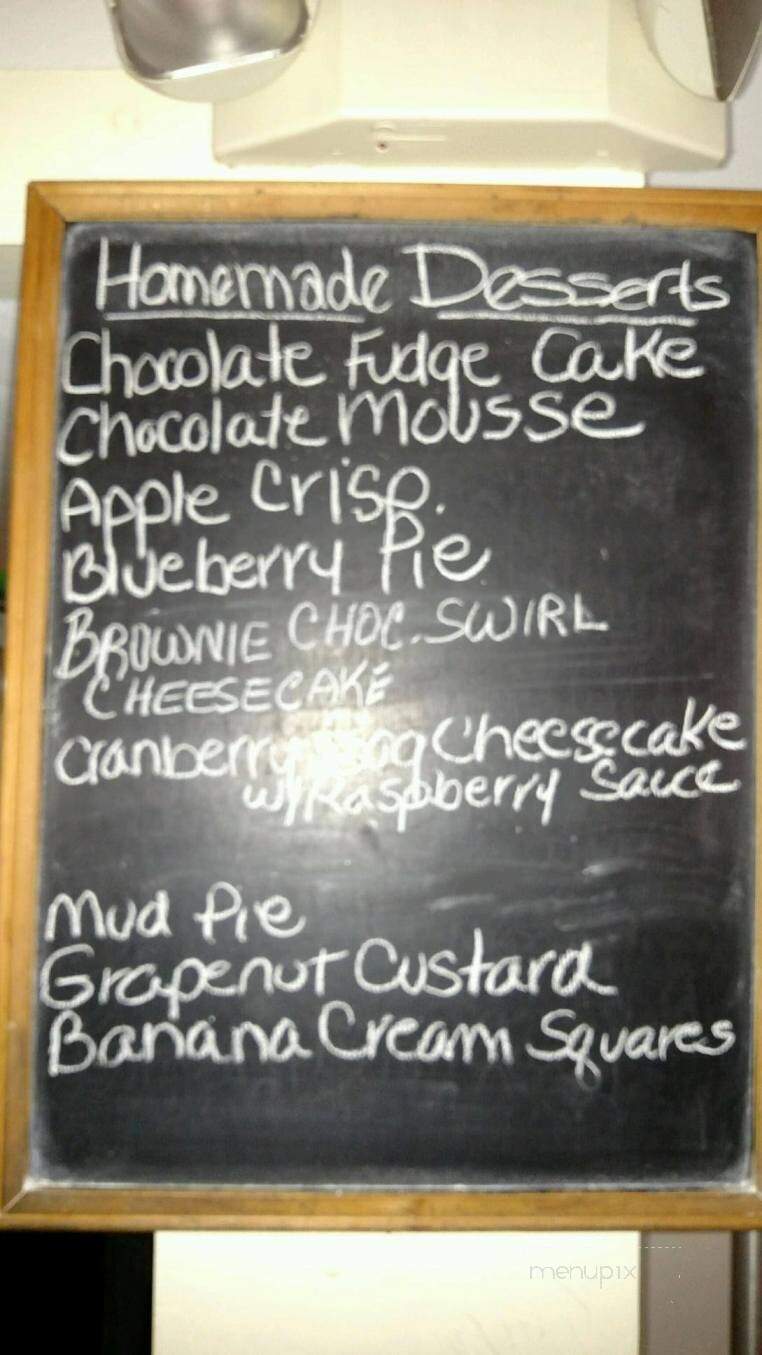 Homemade Desserts
Chocolate Fudge Cake
Chocolate Mousse
Apple Crisp.
Blueberry Pie
BROWNIE CHOC. SWIRL
CHEESECAKE
Cranberry Cheesecake
w/Raspberry Sauce
Mud Pie
Grapenut Custard
Banana Cream Squares
menupix